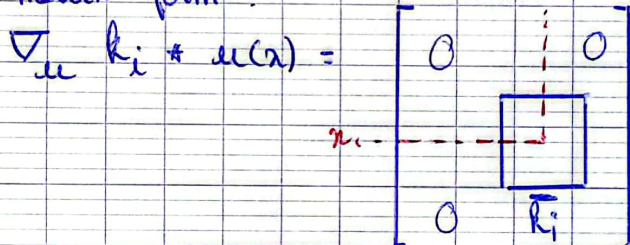 ∇_u k_i * u(x) =
0 0
x
0 k̄_i